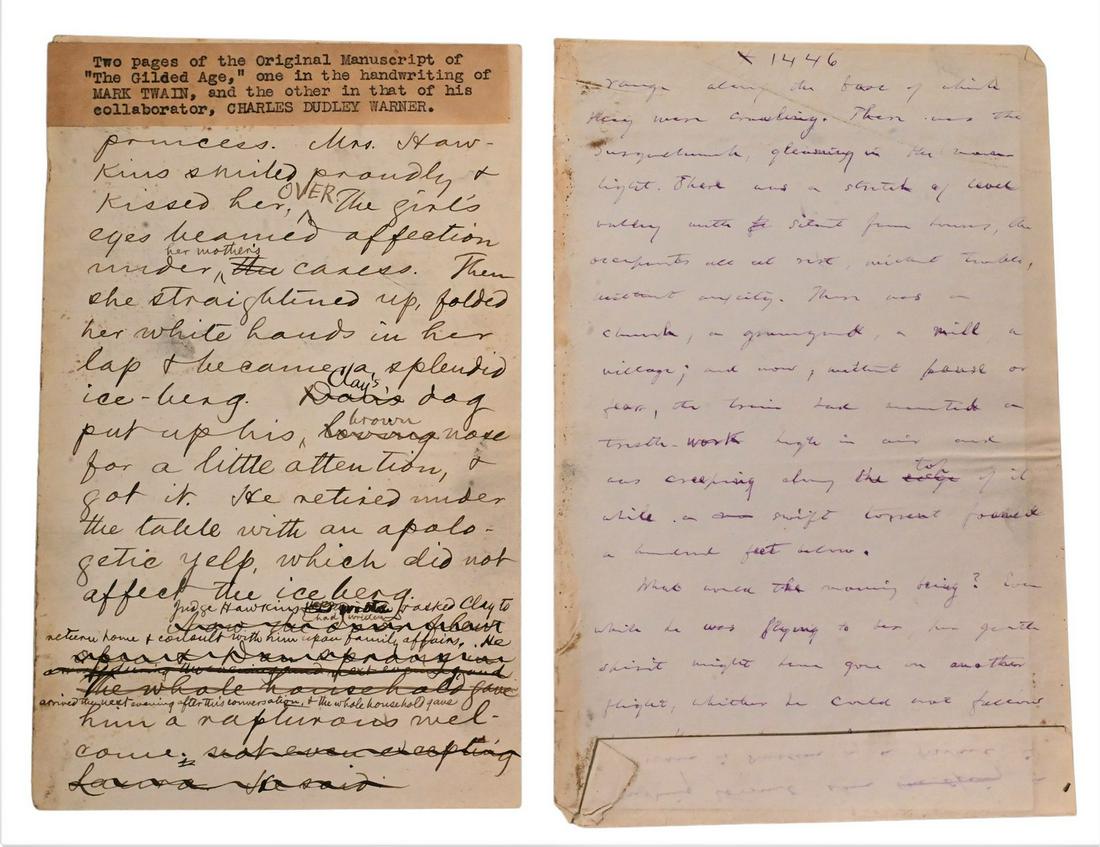 Two pages of the Original Manuscript of
"The Gilded Age," one in the handwriting of
MARK TWAIN, and the other in that of his
collaborator, CHARLES DUDLEY WARNER.
princess. Mrs. Haw-
kins smiled proudly &
kissed her,
OVER
The girl's
eyes beamed affection
her mother's
under, the caress. Then
she straightened up, folded
her white hands in her
lap & became a splendid
Clay's
ice-berg. dog
brown
put up his, loving nose
for a little attention, &
got it. He retired under
the table with an apolo-
getic yelp, which did not
affect the iceberg.
Judge Hawkins wrote & asked Clay to
had written
return home & consult with him upon family affairs. He
The whole household gave
arrived the next evening after this conversation, & the whole household gave
him a rapturous wel-
come; not even excepting
Laura. He said
x 1446
range along the base of which
they were crawling. There was the
Susquehanna, gleaming in the moon-
light. There was a stretch of level
valley with silent farm houses, the
occupants all at rest, without trouble,
without anxiety. There was a
church, a graveyard, a mill, a
village; and now, without pause or
fear, the train had mounted a
trestle-work high in air and
top
was creeping along the edge of it
while a swift torrent foamed
a hundred feet below.
What would the morning bring? Even
while he was flying to her, her gentle
spirit might have gone on another
flight, whither he could not follow